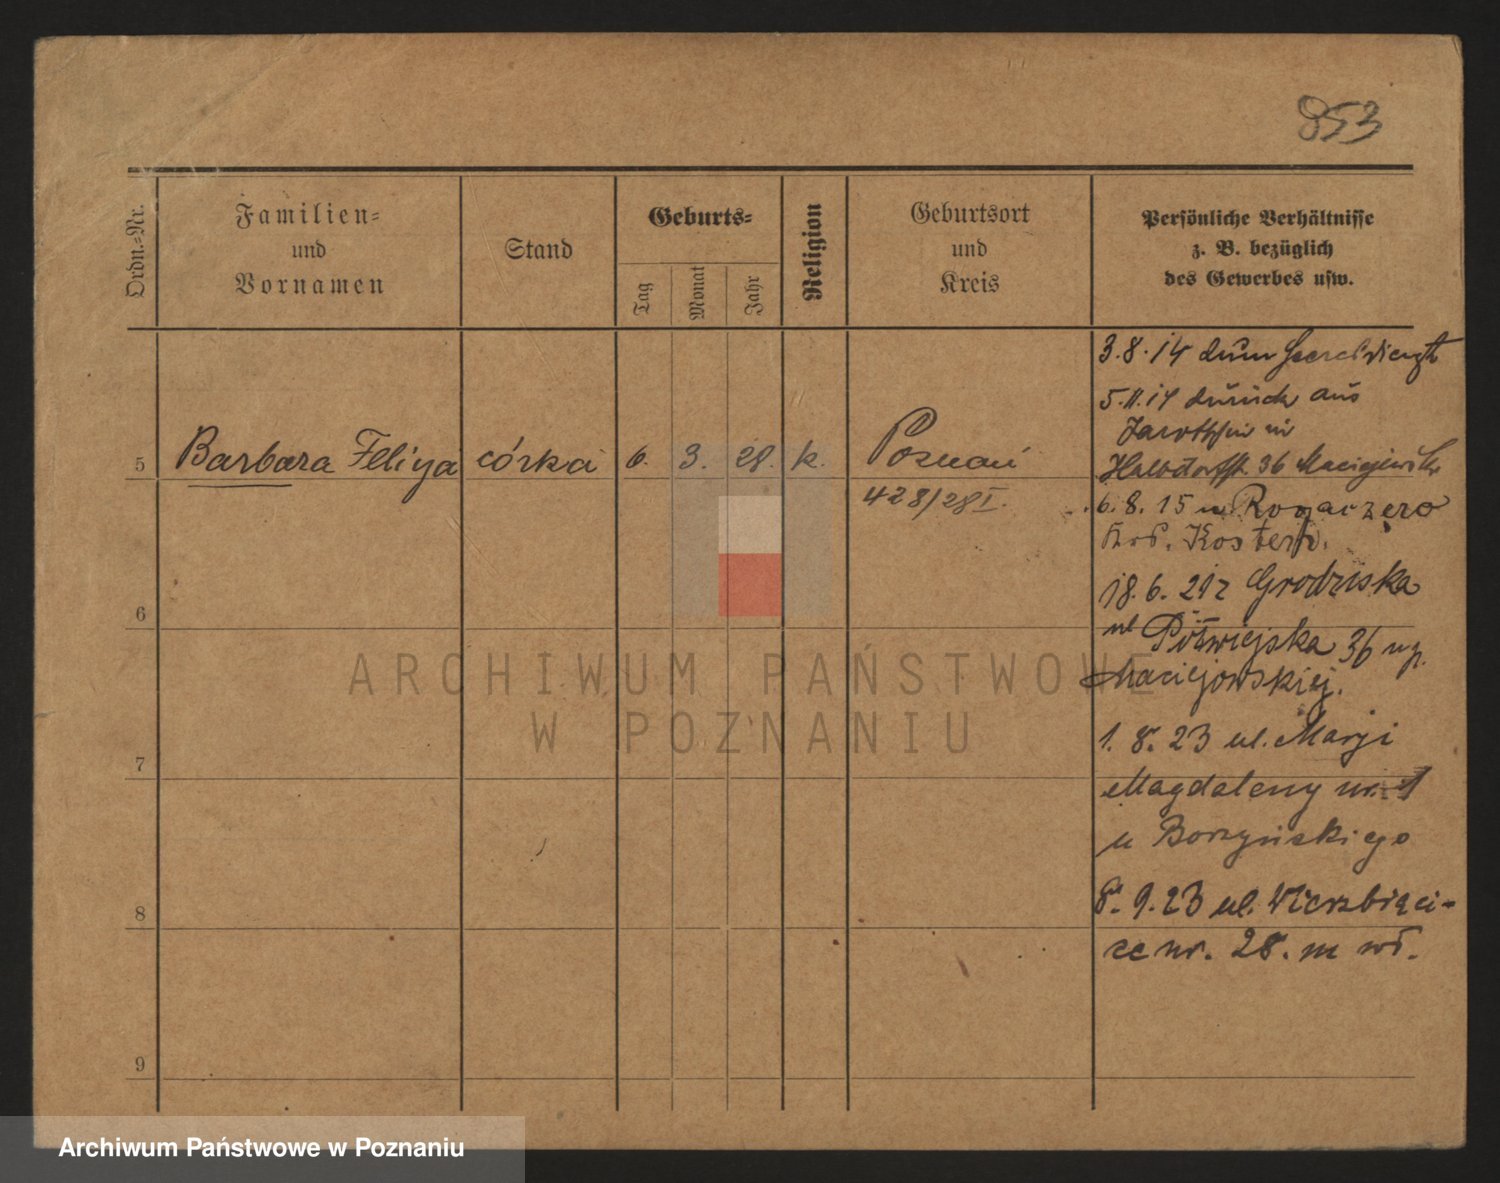 853
Ordn.-Nr.
Familien-
und
Vornamen
Stand
Geburts-
Tag
Monat
Jahr
Religion
Geburtsort
und
Kreis
Persönliche Verhältnisse
z. B. bezüglich
des Gewerbes usw.
5 Barbara Felicja córka 6. 3. 28. k. Poznań
428/28 I.
6
7
8
9
3.8.14 zum Heeresdienst
5.11.14 zurück aus
Jarotschin in
Halbdorfstr. 36
6.8.15 n Rogaczewo
Krs. Kosten.
18.6.21 z Grodziska
ul Półwiejska 36 u p.
Maciejowskiej.
1. 8. 23 ul. Marji
Magdaleny nr. 1
u Borzyńskiego
8. 9. 23 ul. Wierzbięci-
ce nr. 28. m wł.
ARCHIWUM PAŃSTWOWE
W POZNANIU
Archiwum Państwowe w Poznaniu